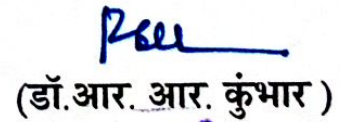 (डॉ.आर. आर. कुंभार )